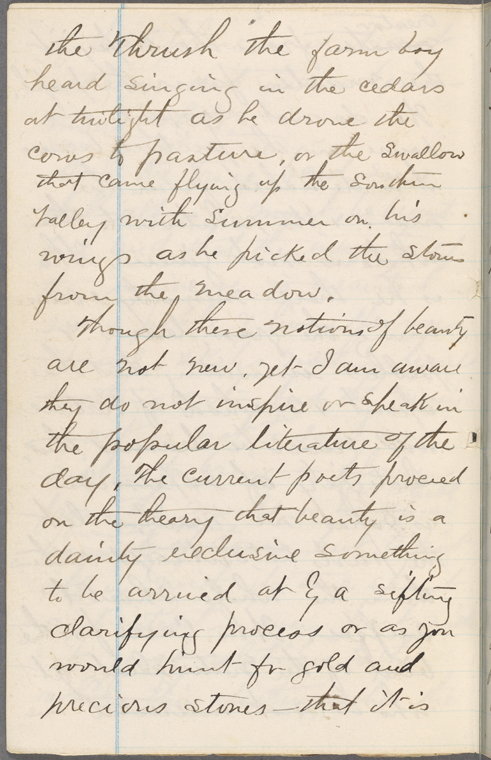 the Thrush the farm boy
heard singing in the cedars
at twilight as he drove the
cows to pasture, or the Swallow
that came flying up the Southern
valley with Summer on his
wings as he picked the stones
from the meadow.
Though these notions of beauty
are not new, yet I am aware
they do not inspire or speak in
the popular literature of the
day. The current poets proceed
on the theory that beauty is a
dainty exclusive something
to be arrived at by a sifting
clarifying process or as you
would hunt for gold and
precious stones – that it is